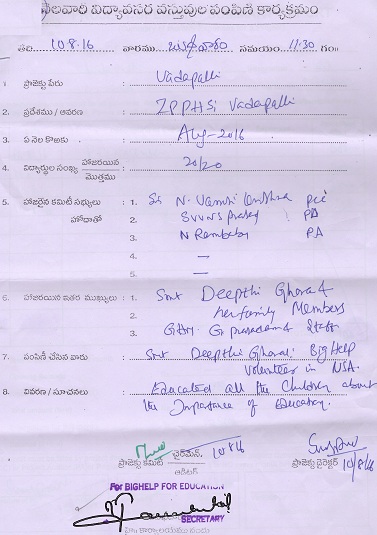 నెలవారి విద్యావసర వస్తువుల పంపిణీ కార్యక్రమం
తేది 10.8.16 వారము బుధవారం సమయం 11:30 గం॥
1. ప్రాజెక్టు పేరు : Vadapalli
2. ప్రదేశము / ఆవరణ : ZPPHS, Vadapalli
3. ఏ నెల కొఱకు : Aug-2016
4. విద్యార్థుల సంఖ్య హాజరయిన మొత్తము : 20/20
5. హాజరైన కమిటీ సభ్యులు : 1. Sri N. Vamsi
హోదాతో 2. SVVNS Prasad PD
3. N Rambabu PA
4. —
5. —
6. హాజరయిన ఇతర ముఖ్యులు : 1. Smt Deepthi Ghorat
2. her family Members
3. G. prasad & Staff
7. పంపిణీ చేసిన వారు : Smt Deepthi Ghorat, BigHelp
volunteer in USA.
8. వివరణ / సూచనలు : Educated all the Children about
the Importance of Education.
ప్రాజెక్టు కమిటీ చైర్‌మేన్, 10/8/16
ఆడిటర్
ప్రాజెక్టు డైరెక్టర్ 10/8/16
For BIGHELP FOR EDUCATION
SECRETARY